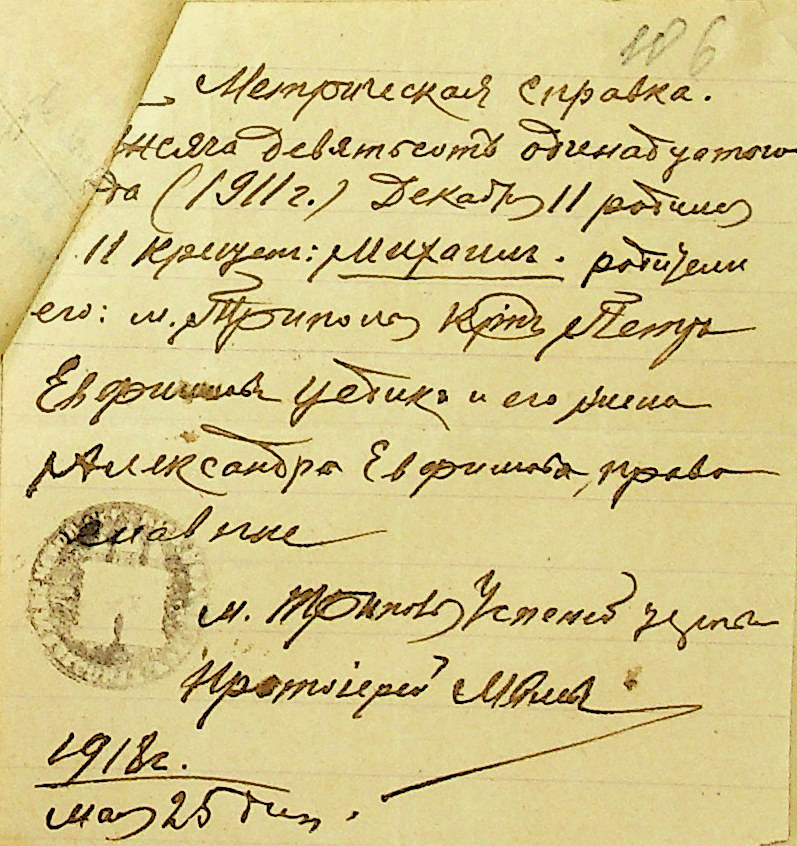 106
Метрическая справка.
тысяча девятьсотъ одинадцатого
да (1911 г.) Декабря 11 родился
11 крещен: Михаилъ. родители
его: м. Триполья Кр-нъ Петръ
Евфимовъ Цебика и его жена
Александра Евфимова, право
славные
м. Триполья Успенской церкви
Протоіерей
1918 г.
мая 25 дня.